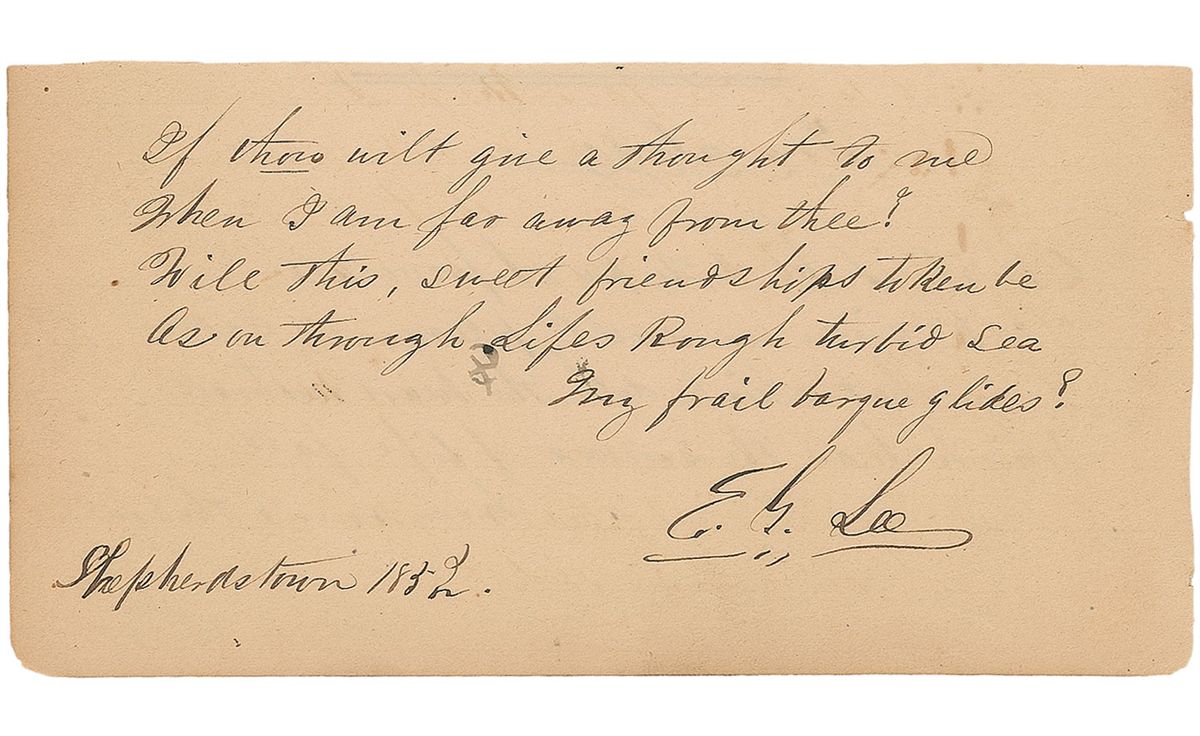 If thou wilt give a thought to me
When I am far away from thee?
Will this, sweet friendships token be
As on through Lifes Rough turbid sea
My frail barque glides?
E. G. Lee
Shepherdstown 1852.